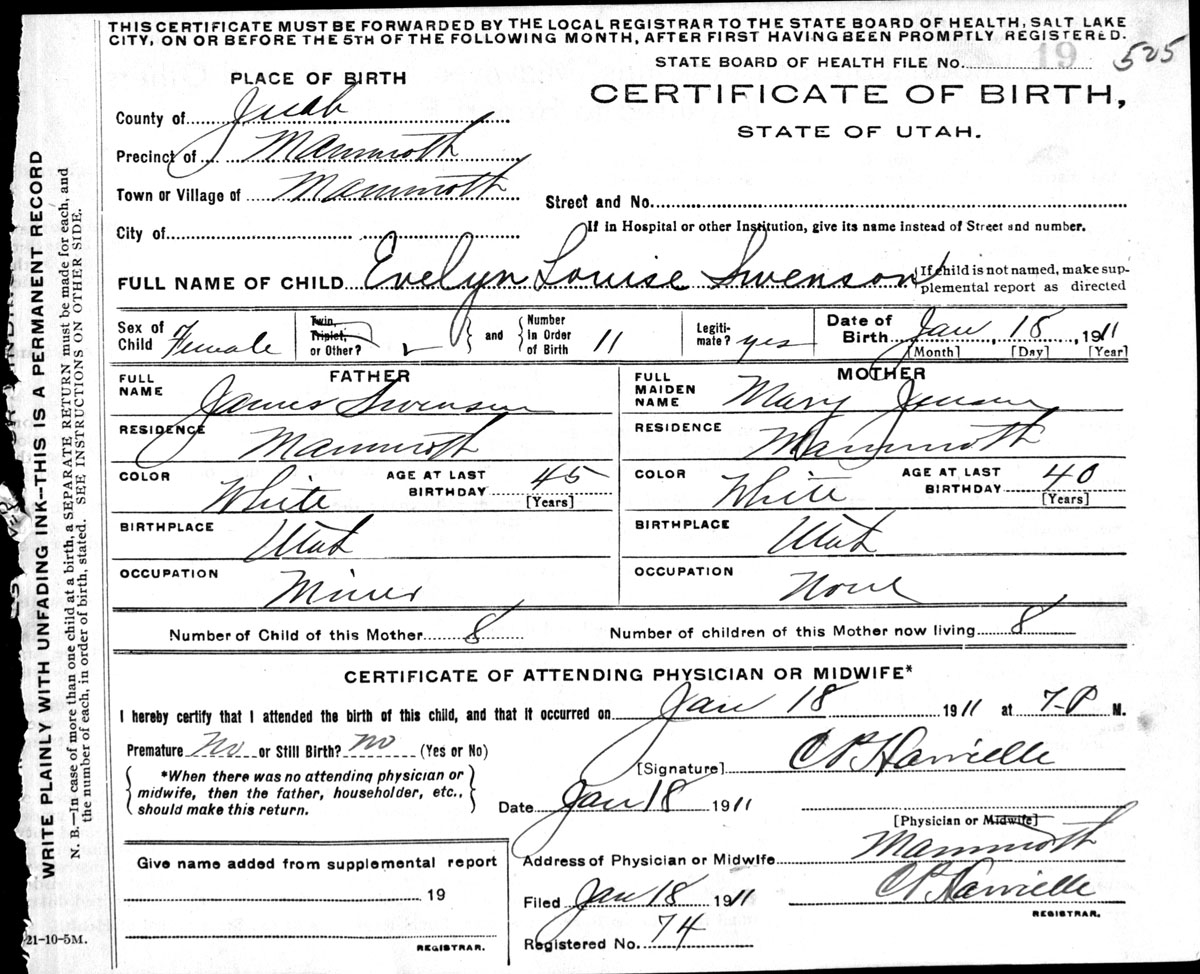 THIS CERTIFICATE MUST BE FORWARDED BY THE LOCAL REGISTRAR TO THE STATE BOARD OF HEALTH, SALT LAKE
CITY, ON OR BEFORE THE 5TH OF THE FOLLOWING MONTH, AFTER FIRST HAVING BEEN PROMPTLY REGISTERED.
STATE BOARD OF HEALTH FILE NO. 19 525
PLACE OF BIRTH
CERTIFICATE OF BIRTH,
STATE OF UTAH.
County of Juab
Precinct of Mammoth
Town or Village of Mammoth
Street and No.
City of
If in Hospital or other Institution, give its name instead of Street and number.
FULL NAME OF CHILD Evelyn Louise Swenson
If child is not named, make sup-
plemental report as directed
Sex of Child Female
Twin, Triplet, or Other?
and
Number in Order of Birth 11
Legiti-mate? yes
Date of Birth Jan 18, 1911
[Month] [Day] [Year]
FATHER
FULL NAME James Swensen
RESIDENCE Mammoth
COLOR White AGE AT LAST BIRTHDAY 45 [Years]
BIRTHPLACE Utah
OCCUPATION Miner
MOTHER
FULL MAIDEN NAME Mary Jensen
RESIDENCE Mammoth
COLOR White AGE AT LAST BIRTHDAY 40 [Years]
BIRTHPLACE Utah
OCCUPATION None
Number of Child of this Mother 8 Number of children of this Mother now living 8
CERTIFICATE OF ATTENDING PHYSICIAN OR MIDWIFE*
I hereby certify that I attended the birth of this child, and that it occurred on Jan 18 1911 at 7-P M.
Premature No or Still Birth? No (Yes or No)
*When there was no attending physician or
midwife, then the father, householder, etc.,
should make this return.
[Signature]
Date Jan 18 1911
[Physician or Midwife]
Address of Physician or Midwife Mammoth
Filed Jan 18 1911
REGISTRAR.
Registered No. 74
Give name added from supplemental report
19
REGISTRAR.
21-10-5M.
WRITE PLAINLY WITH UNFADING INK--THIS IS A PERMANENT RECORD
N. B.—In case of more than one child at a birth, a SEPARATE RETURN must be made for each, and
the number of each, in order of birth, stated. SEE INSTRUCTIONS ON OTHER SIDE.